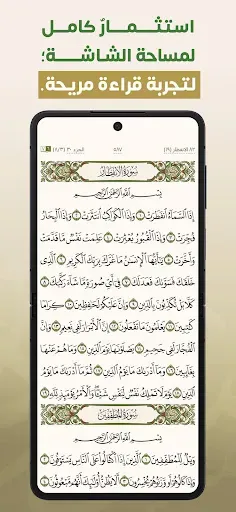 استثمارٌ كامل
لمساحة الشاشة؛
لتجربة قراءة مريحة.
٨٢ الانفطار (١٩) ٥٨٧ الجزء ٣٠
سُورَةُ الانفِطَارِ
بِسْمِ ٱللَّهِ ٱلرَّحْمَٰنِ ٱلرَّحِيمِ
إِذَا ٱلسَّمَآءُ ٱنفَطَرَتْ ١ وَإِذَا ٱلْكَوَاكِبُ ٱنتَثَرَتْ ٢ وَإِذَا ٱلْبِحَارُ
فُجِّرَتْ ٣ وَإِذَا ٱلْقُبُورُ بُعْثِرَتْ ٤ عَلِمَتْ نَفْسٌ مَّا قَدَّمَتْ
وَأَخَّرَتْ ٥ يَٰٓأَيُّهَا ٱلْإِنسَٰنُ مَا غَرَّكَ بِرَبِّكَ ٱلْكَرِيمِ ٦ ٱلَّذِى
خَلَقَكَ فَسَوَّىٰكَ فَعَدَلَكَ ٧ فِىٓ أَىِّ صُورَةٍ مَّا شَآءَ رَكَّبَكَ ٨
كَلَّا بَلْ تُكَذِّبُونَ بِٱلدِّينِ ٩ وَإِنَّ عَلَيْكُمْ لَحَٰفِظِينَ ١٠ كِرَامًا
كَٰتِبِينَ ١١ يَعْلَمُونَ مَا تَفْعَلُونَ ١٢ إِنَّ ٱلْأَبْرَارَ لَفِى نَعِيمٍ ١٣ وَإِنَّ
ٱلْفُجَّارَ لَفِى جَحِيمٍ ١٤ يَصْلَوْنَهَا يَوْمَ ٱلدِّينِ ١٥ وَمَا
هُمْ عَنْهَا بِغَآئِبِينَ ١٦ وَمَآ أَدْرَىٰكَ مَا يَوْمُ ٱلدِّينِ ١٧ ثُمَّ مَآ أَدْرَىٰكَ مَا يَوْمُ
ٱلدِّينِ ١٨ يَوْمَ لَا تَمْلِكُ نَفْسٌ لِّنَفْسٍ شَيْـًٔا وَٱلْأَمْرُ يَوْمَئِذٍ لِّلَّهِ ١٩
سُورَةُ المُطَفِّفِينَ
بِسْمِ ٱللَّهِ ٱلرَّحْمَٰنِ ٱلرَّحِيمِ
وَيْلٌ لِّلْمُطَفِّفِينَ ١ ٱلَّذِينَ إِذَا ٱكْتَالُوا۟ عَلَى ٱلنَّاسِ يَسْتَوْفُونَ ٢
وَإِذَا كَالُوهُمْ أَو وَّزَنُوهُمْ يُخْسِرُونَ ٣ أَلَا يَظُنُّ أُو۟لَٰٓئِكَ أَنَّهُم مَّبْعُوثُونَ ٤